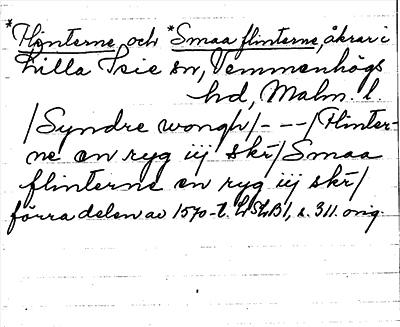 *Hinterne och *Smaa flinterne, åkrar i
Lilla Isie sn, Vemmenhögs
hd, Malm. l
/Syndre wongh/ - - - /Hinter-
ne en ryg iij skr/ Smaa
flinterne en ryg iij skr/
förra delen av 1570-t. LSLB 1, s. 311. orig.